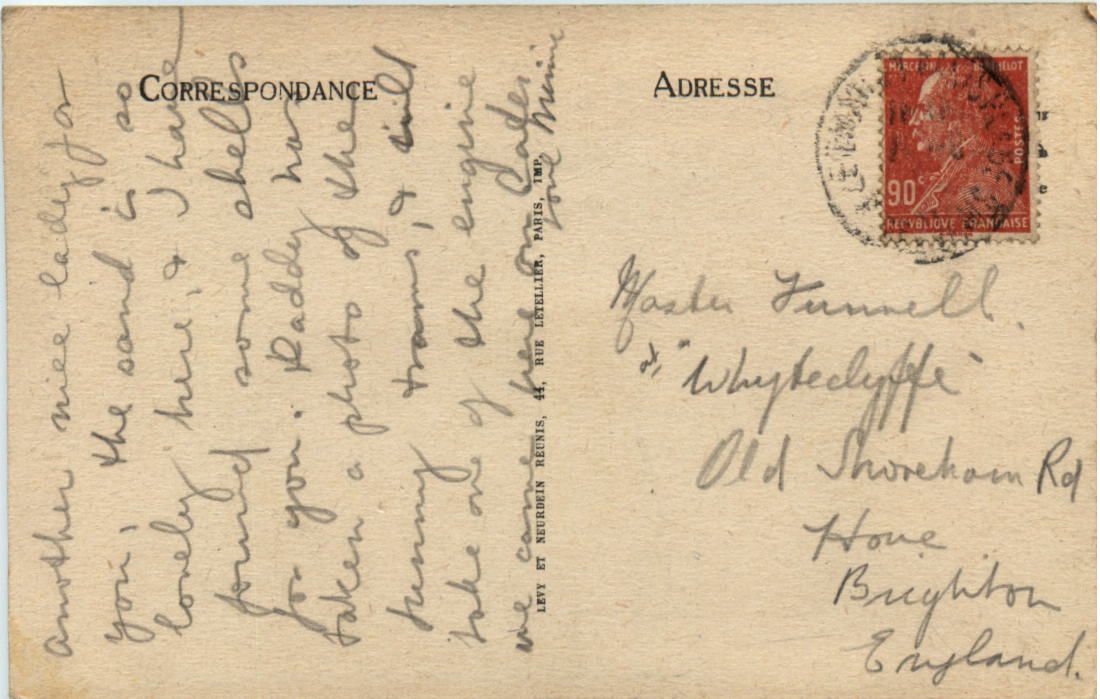 CORRESPONDANCE
another nice lady for
you, the sand is so
lovely here, & I have
found some shells
for you. Daddy has
taken a photo of the
funny trams, & will
take one of the engine
we came here on later
love
LEVY ET NEURDEIN RÉUNIS, 44, RUE LETELLIER, PARIS, IMP.
ADRESSE
MARCELIN BERTHELOT
POSTES
90c
REPVBLIQVE FRANÇAISE
Master Funnell.
at "Whyteclyffe"
Old Shoreham Rd
Hove
Brighton
England.